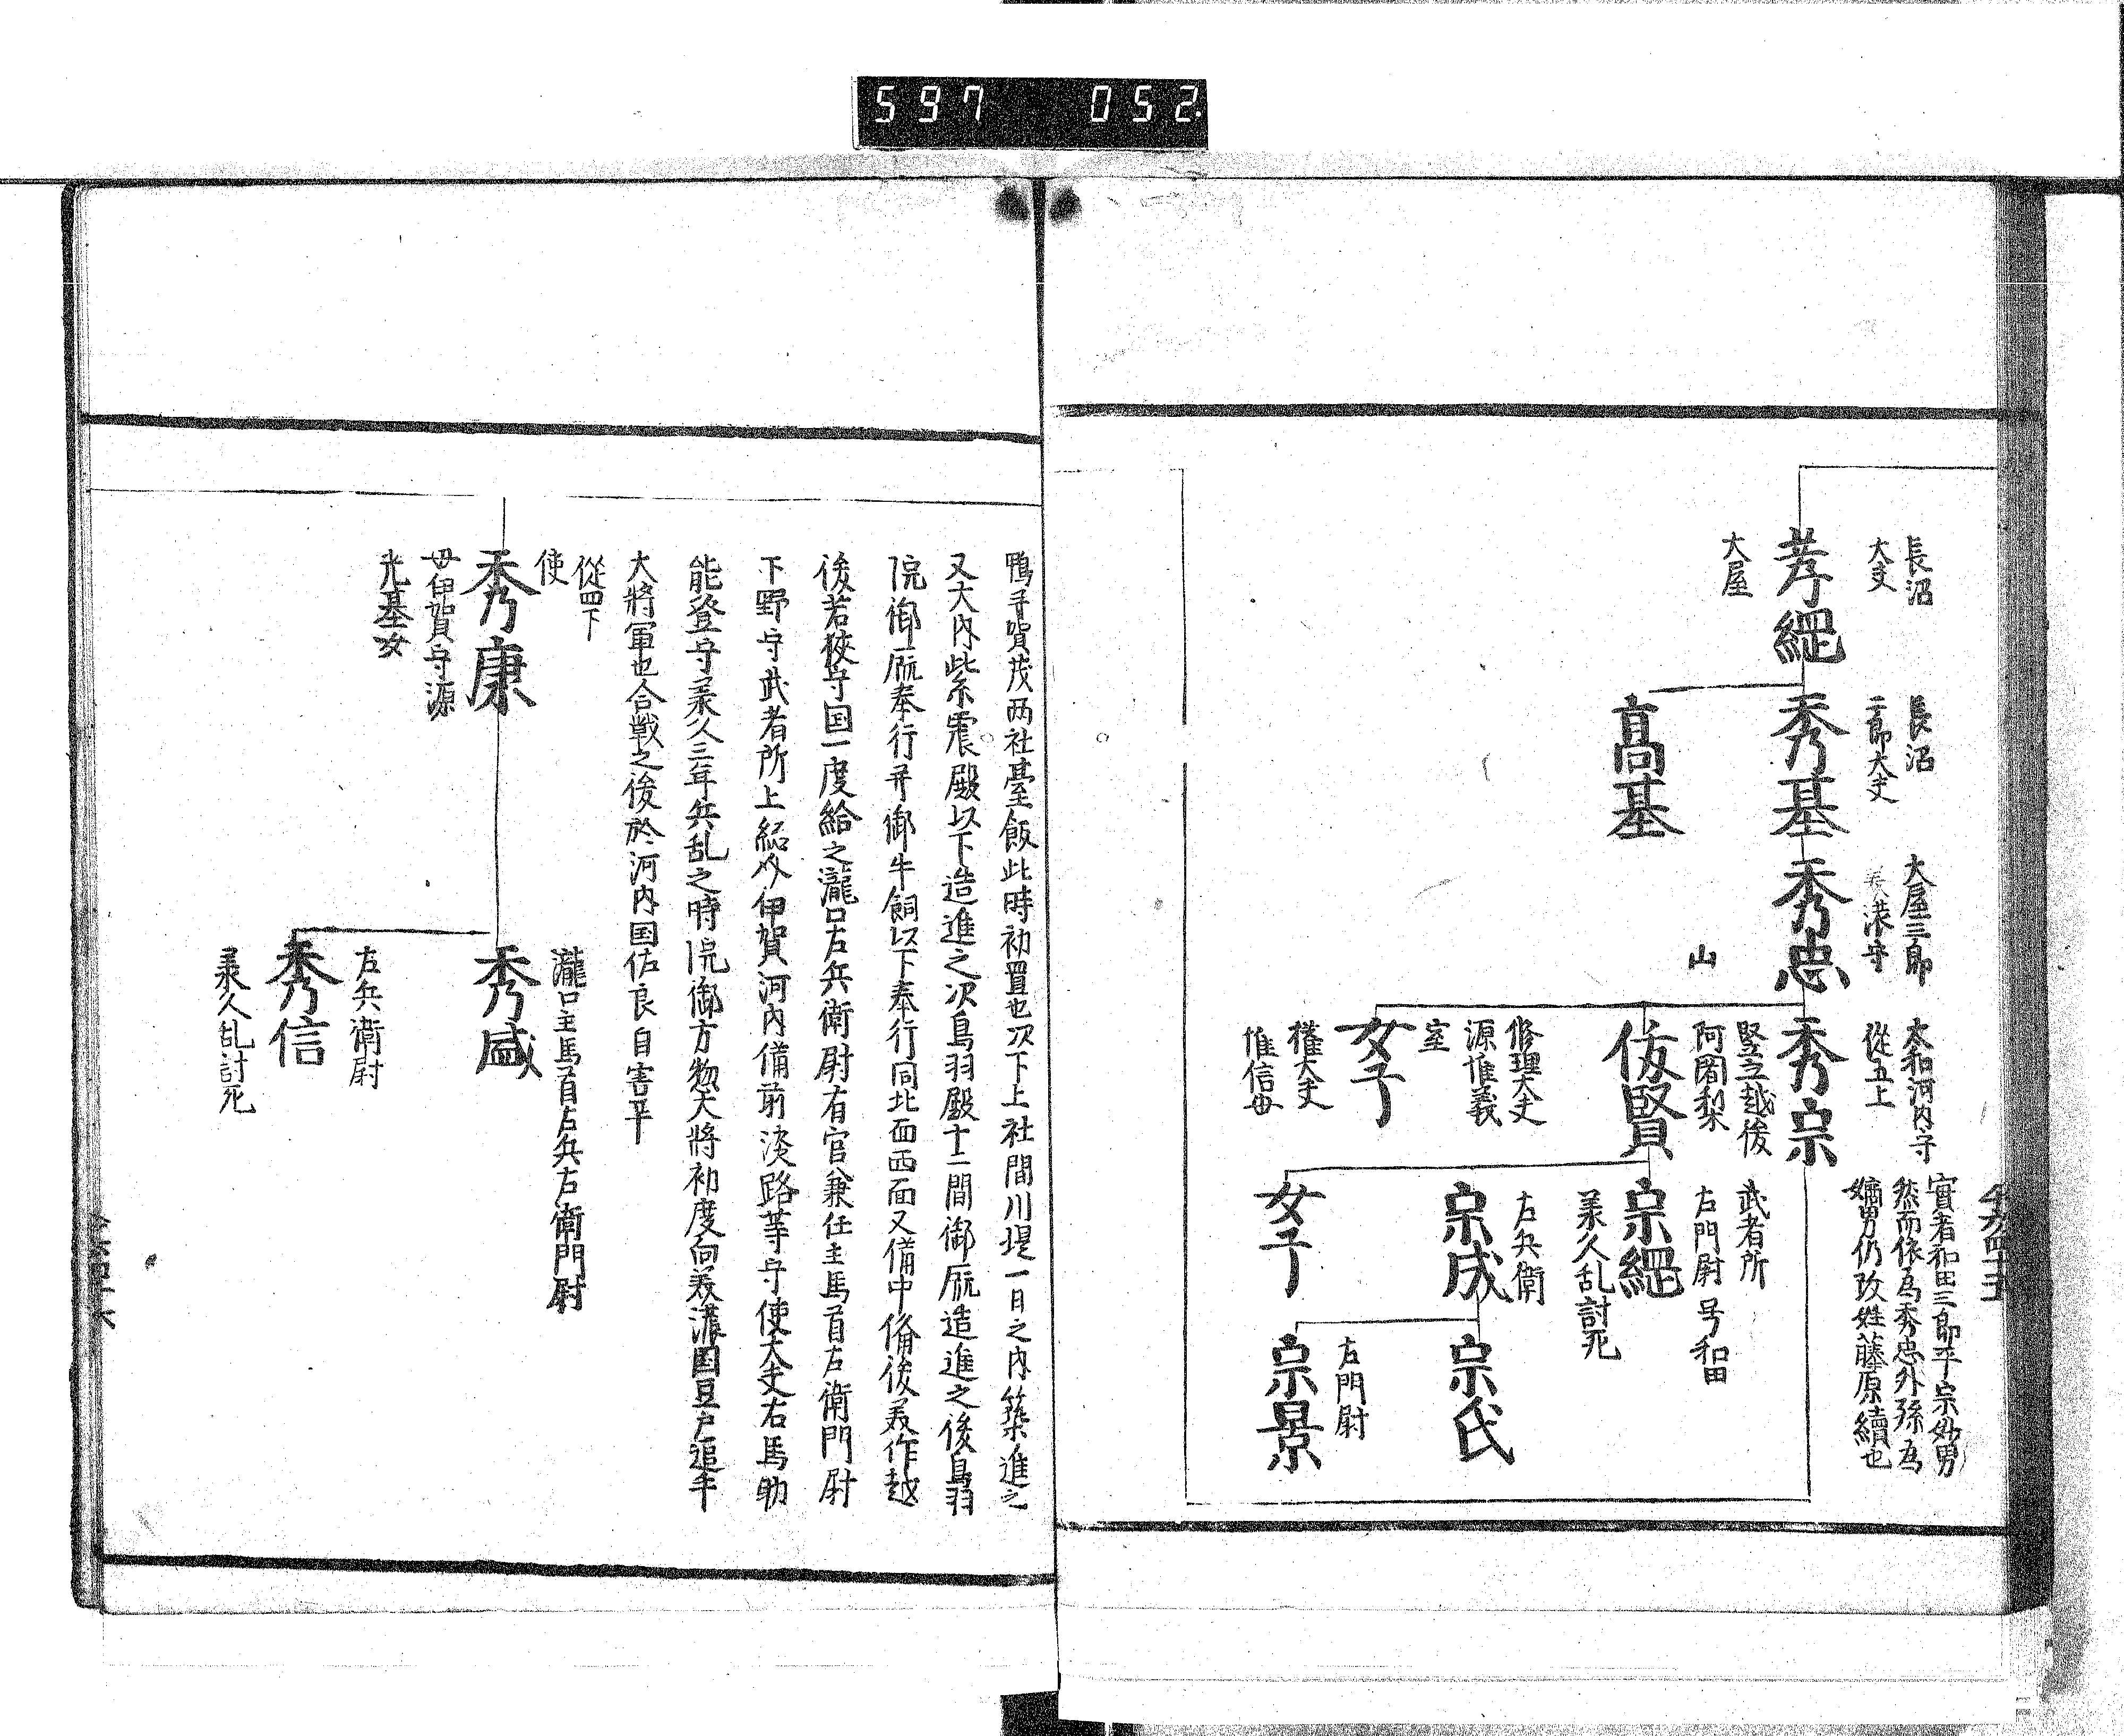 597 052
長沼
大夫
孝綱
大屋
長沼
二郎大夫
秀基
高基
大屋三郎
美濃守
秀忠
大和河内守
從五上
秀宗
實者和田三郎平宗妙男
然而依為秀忠外孫為
嫡男仍改姓藤原續也
山
竪立越後
阿闍梨
修理大夫
源惟義
室
女子
權大夫
惟信母
武者所
左門尉 号和田
宗綱
承久乱討死
左兵衛
宗成
女子
宗氏
左門尉
宗景
鴨并賀茂両社臺飯此時初置也次下上社間川堤一日之内築進之
又大内紫震殿以下造進之次鳥羽殿十二間御厩造進之後鳥羽
院御厩奉行并御牛飼以下奉行同北面西面又備中備後美作越
後若狹守国一度給之瀧口左兵衛尉有官兼任主馬首左衛門尉
下野守武者所上総介伊賀河内備前淡路等守使大夫右馬助
能登守承久三年兵乱之時院御方惣大將初度向美濃国豆戸追手
大將軍也合戦之後於河内国佐良自害畢
從四下
使
秀康
母伊賀守源
光基女
瀧口主馬首左兵左衛門尉
秀盛
左兵衛尉
秀信
承久乱討死